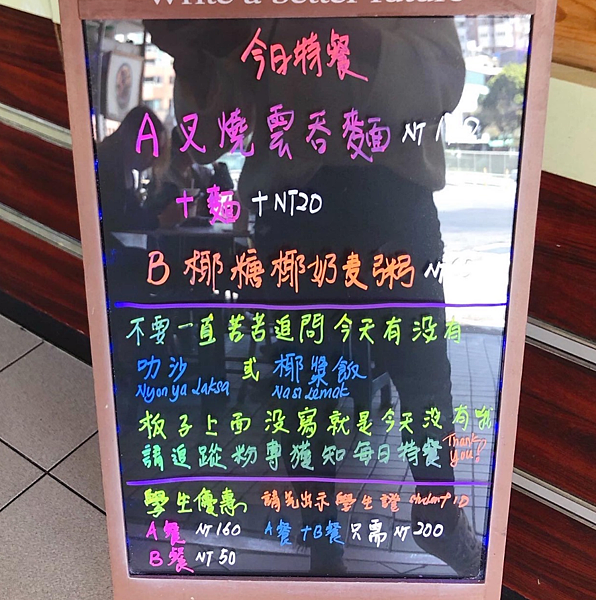 Write a better future
今日特餐
A 叉燒雲吞麵 NT
+ 麵 + NT20
B 椰糖椰奶麦粥 NT
不要一直苦苦追問今天有沒有
叻沙 或 椰漿飯
Nyonya Laksa Nasi Lemak
板子上面沒寫就是今天沒有哦
請追蹤粉專獲知每日特餐 Thank you!
學生優惠 請先出示學生證 student ID
A餐 NT160 A餐+B餐只需 NT200
B餐 NT50